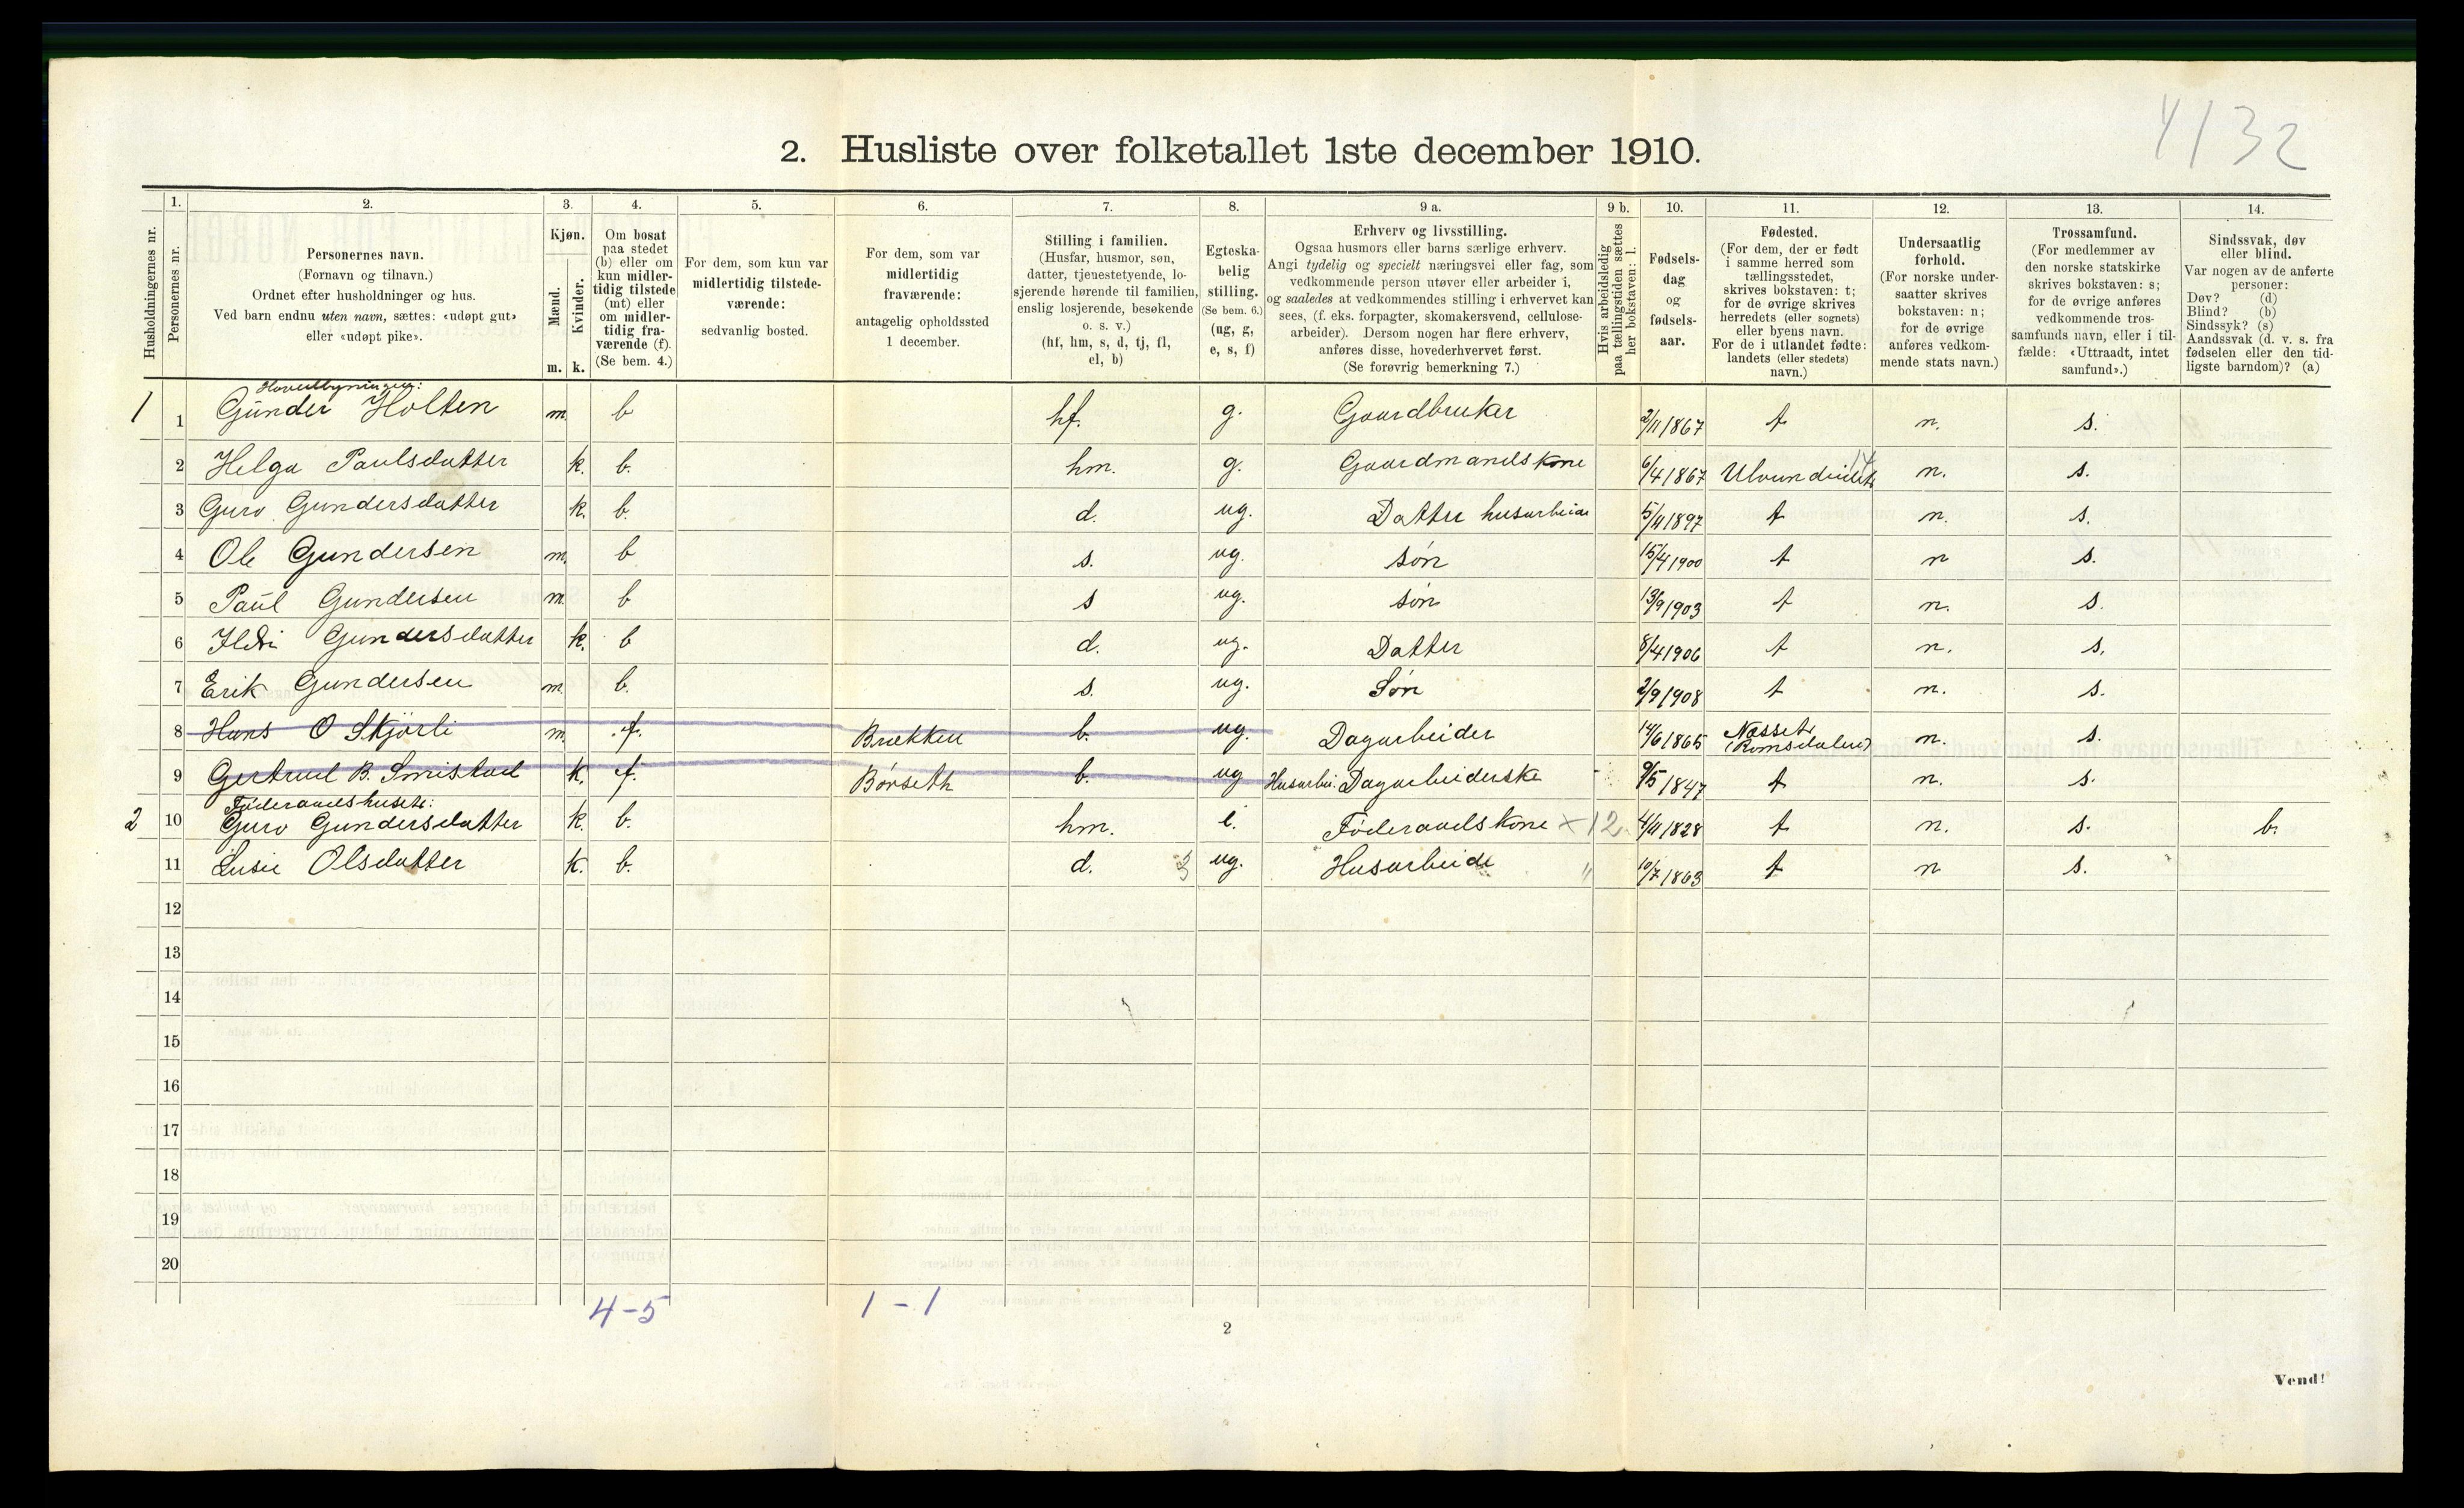 4/32
2. Husliste over folketallet 1ste december 1910.
Husholdningernes nr.
1.
Personernes nr.
2.
Personernes navn.
(Fornavn og tilnavn.)
Ordnet efter husholdninger og hus.
Ved barn endnu uten navn, sættes: «udøpt gut»
eller «udøpt pike».
3.
Kjøn.
Mænd.
Kvinder.
m. k.
4.
Om bosat
paa stedet
(b) eller om
kun midler-
tidig tilstede
(mt) eller
om midler-
tidig fra-
værende (f).
(Se bem. 4.)
5.
For dem, som kun var
midlertidig tilstede-
værende:
sedvanlig bosted.
6.
For dem, som var
midlertidig
fraværende:
antagelig opholdssted
1 december.
7.
Stilling i familien.
(Husfar, husmor, søn,
datter, tjenestetyende, lo-
sjerende hørende til familien,
enslig losjerende, besøkende
o. s. v.)
(hf, hm, s, d, tj, fl,
el, b)
8.
Egteska-
belig
stilling.
(Se bem. 6.)
(ug, g,
e, s, f)
9 a.
Erhverv og livsstilling.
Ogsaa husmors eller barns særlige erhverv.
Angi tydelig og specielt næringsvei eller fag, som
vedkommende person utøver eller arbeider i,
og saaledes at vedkommendes stilling i erhvervet kan
sees, (f. eks. forpagter, skomakersvend, cellulose-
arbeider). Dersom nogen har flere erhverv,
anføres disse, hovederhvervet først.
(Se forøvrig bemerkning 7.)
9 b.
Hvis arbeidsledig
paa tællingstiden sættes
her bokstaven: l.
10.
Fødsels-
dag
og
fødsels-
aar.
11.
Fødested.
(For dem, der er født
i samme herred som
tællingsstedet,
skrives bokstaven: t;
for de øvrige skrives
herredets (eller sognets)
eller byens navn.
For de i utlandet fødte:
landets (eller stedets)
navn.)
12.
Undersaatlig
forhold.
(For norske under-
saatter skrives
bokstaven: n;
for de øvrige
anføres vedkom-
mende stats navn.)
13.
Trossamfund.
(For medlemmer av
den norske statskirke
skrives bokstaven: s;
for de øvrige anføres
vedkommende tros-
samfunds navn, eller i til-
fælde: «Uttraadt, intet
samfund».)
14.
Sindssvak, døv
eller blind.
Var nogen av de anførte
personer:
Døv? (d)
Blind? (b)
Sindssyk? (s)
Aandssvak (d. v. s. fra
fødselen eller den tid-
ligste barndom)? (a)
Hovedbygningen:
1 1 Gunder Holten m. b hf. g. Gaardbruker 2/11 1867 t n. s.
2 Helga Paulsdatter k. b. hm. g. Gaardmandskone 6/4 1867 14 n. s.
3 Guro Gundersdatter k. b. d. ug. Datter husarbeide 5/11 1897 t n. s.
4 Ole Gundersen m. b s. ug. søn 15/4 1900 t n s.
5 Paul Gundersen m. b s ug. søn 13/9 1903 t n. s.
6 Ildri Gundersdatter k. b d. ug. Datter 8/4 1906 t n. s.
7 Erik Gundersen m. b. s. ug. Søn 2/9 1908 t n. s.
8 Hans O Skjørli m. f. Brækken b. ug. Dagarbeider 14/6 1865 Nesset (Romsdalen) n. s.
9 Gertrud B. Smistad k. f. Børseth b. ug Husarbei. Dagarbeiderske 9/5 1847 t n. s.
Føderaadshuset:
2 10 Guro Gundersdatter k. b. hm. e. Føderaadskone × 12 4/11 1828 t n. s. b.
11 Lusie Olsdatter k. b. d. 3 ug. Husarbeide " 10/7 1863 t n s.
12
13
14
15
16
17
18
19
20
4-5 1-1
2
Vend!